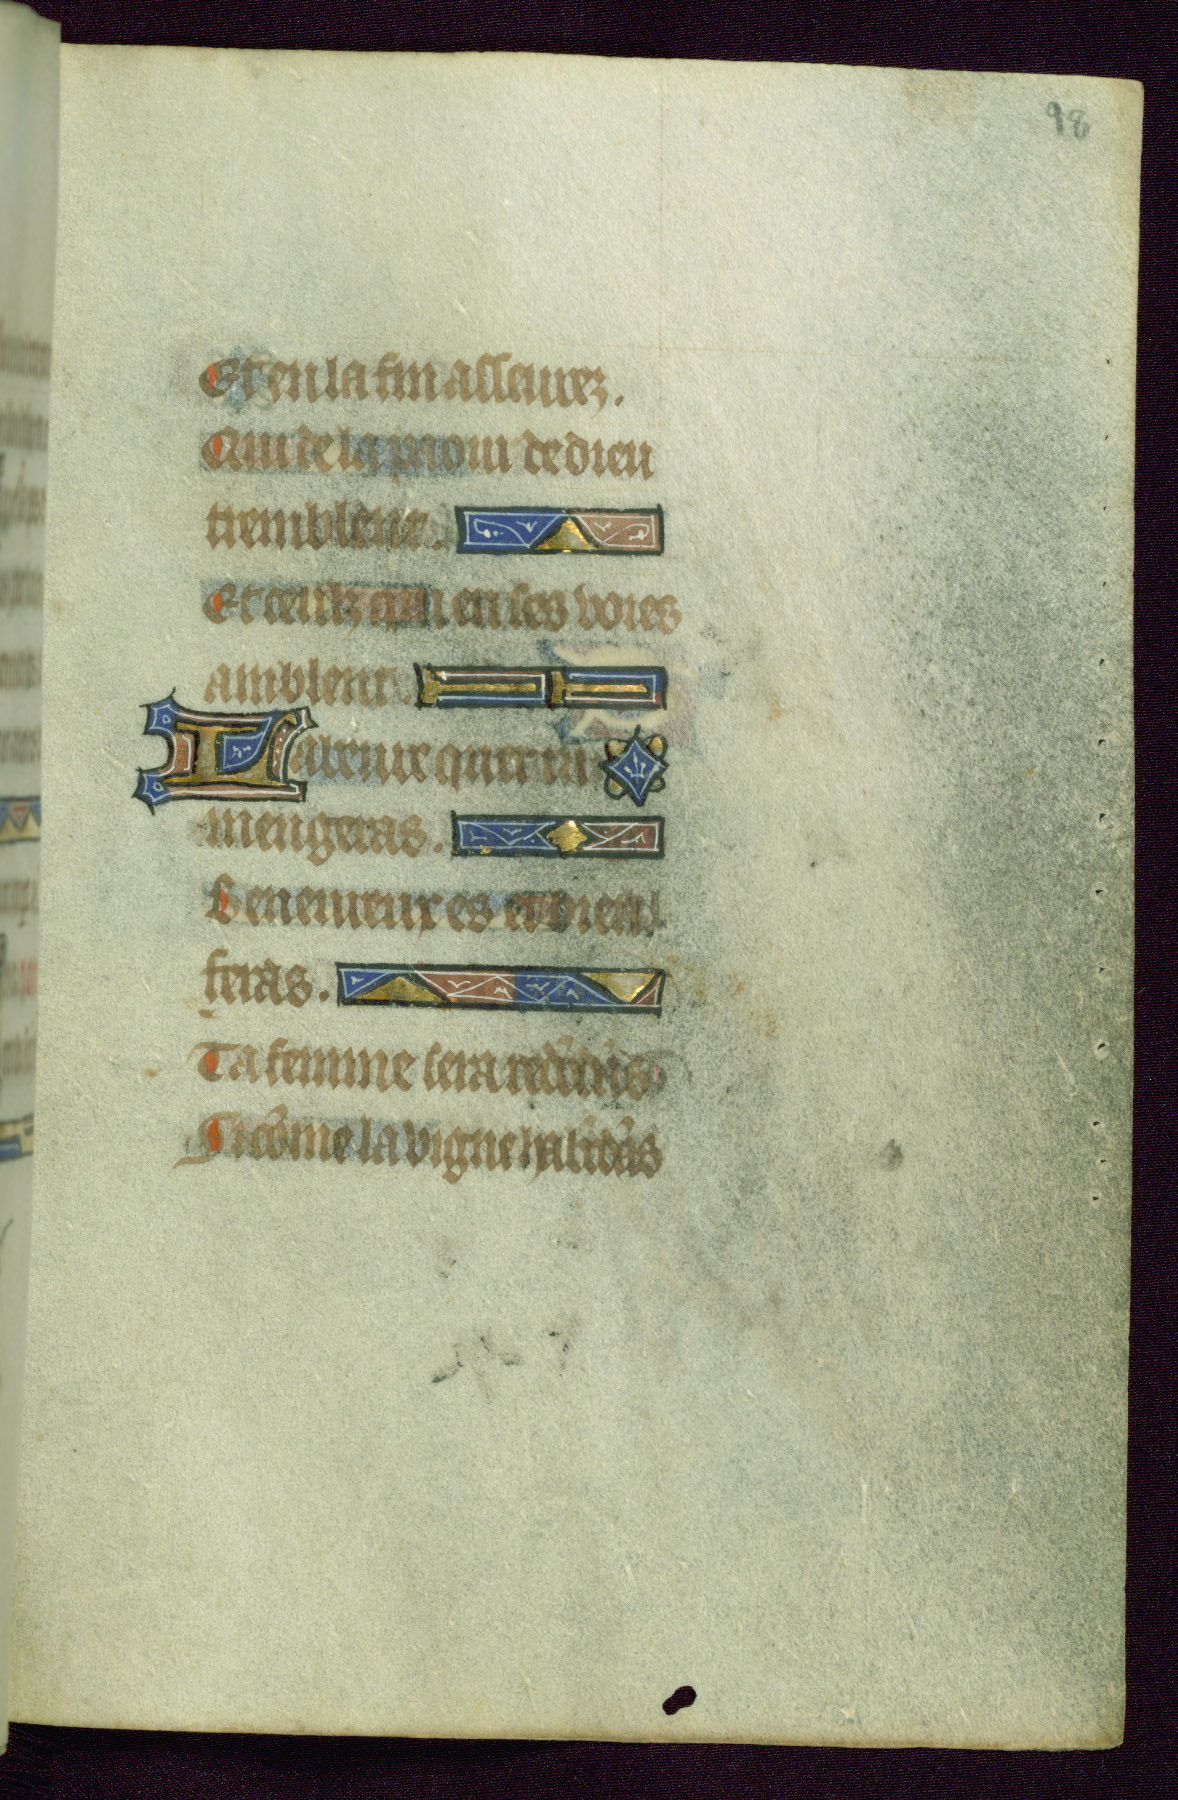 98
Et en la fin asseurez.
Qui de la paour de dieu
tremblent.
Et ceulz qui en ses voies
amblent.
Labeur que tu
mengeras.
Beneureux es et bien
feras.
Ta femme sera
Si cõme la vigne